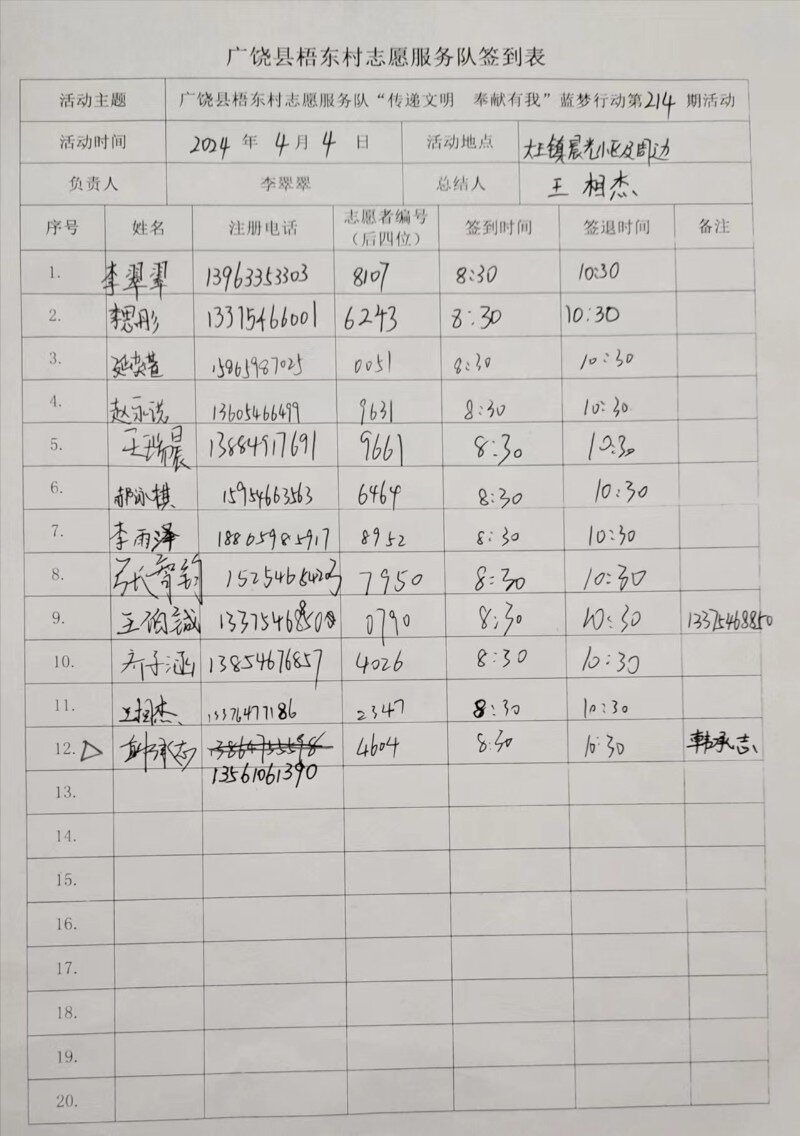 广饶县梧东村志愿服务队签到表
活动主题 广饶县梧东村志愿服务队“传递文明 奉献有我”蓝梦行动第214期活动
活动时间 2024年4月4日 活动地点 大王镇晨光小区及周边
负责人 李翠翠 总结人 王相杰
序号 姓名 注册电话 志愿者编号（后四位） 签到时间 签退时间 备注
1. 李翠翠 13963353303 8107 8:30 10:30
2. 李思彤 13375466001 6243 8:30 10:30
3. 15965987025 0051 8:30 10:30
4. 赵示说 13605466499 9631 8:30 10:30
5. 王瑞晨 13884917691 9661 8:30 10:30
6. 郝泳棋 15954663563 6464 8:30 10:30
7. 李雨泽 18865985917 8952 8:30 10:30
8. 7950 8:30 10:30
9. 王佰诚 0790 8:30 10:30 13375468850
10. 齐子涵 13854676857 4026 8:30 10:30
11. 王相杰 13376477186 2347 8:30 10:30
12. 韩承志 13864755598 4604 8:30 10:30 韩承志
13561061390
13.
14.
15.
16.
17.
18.
19.
20.